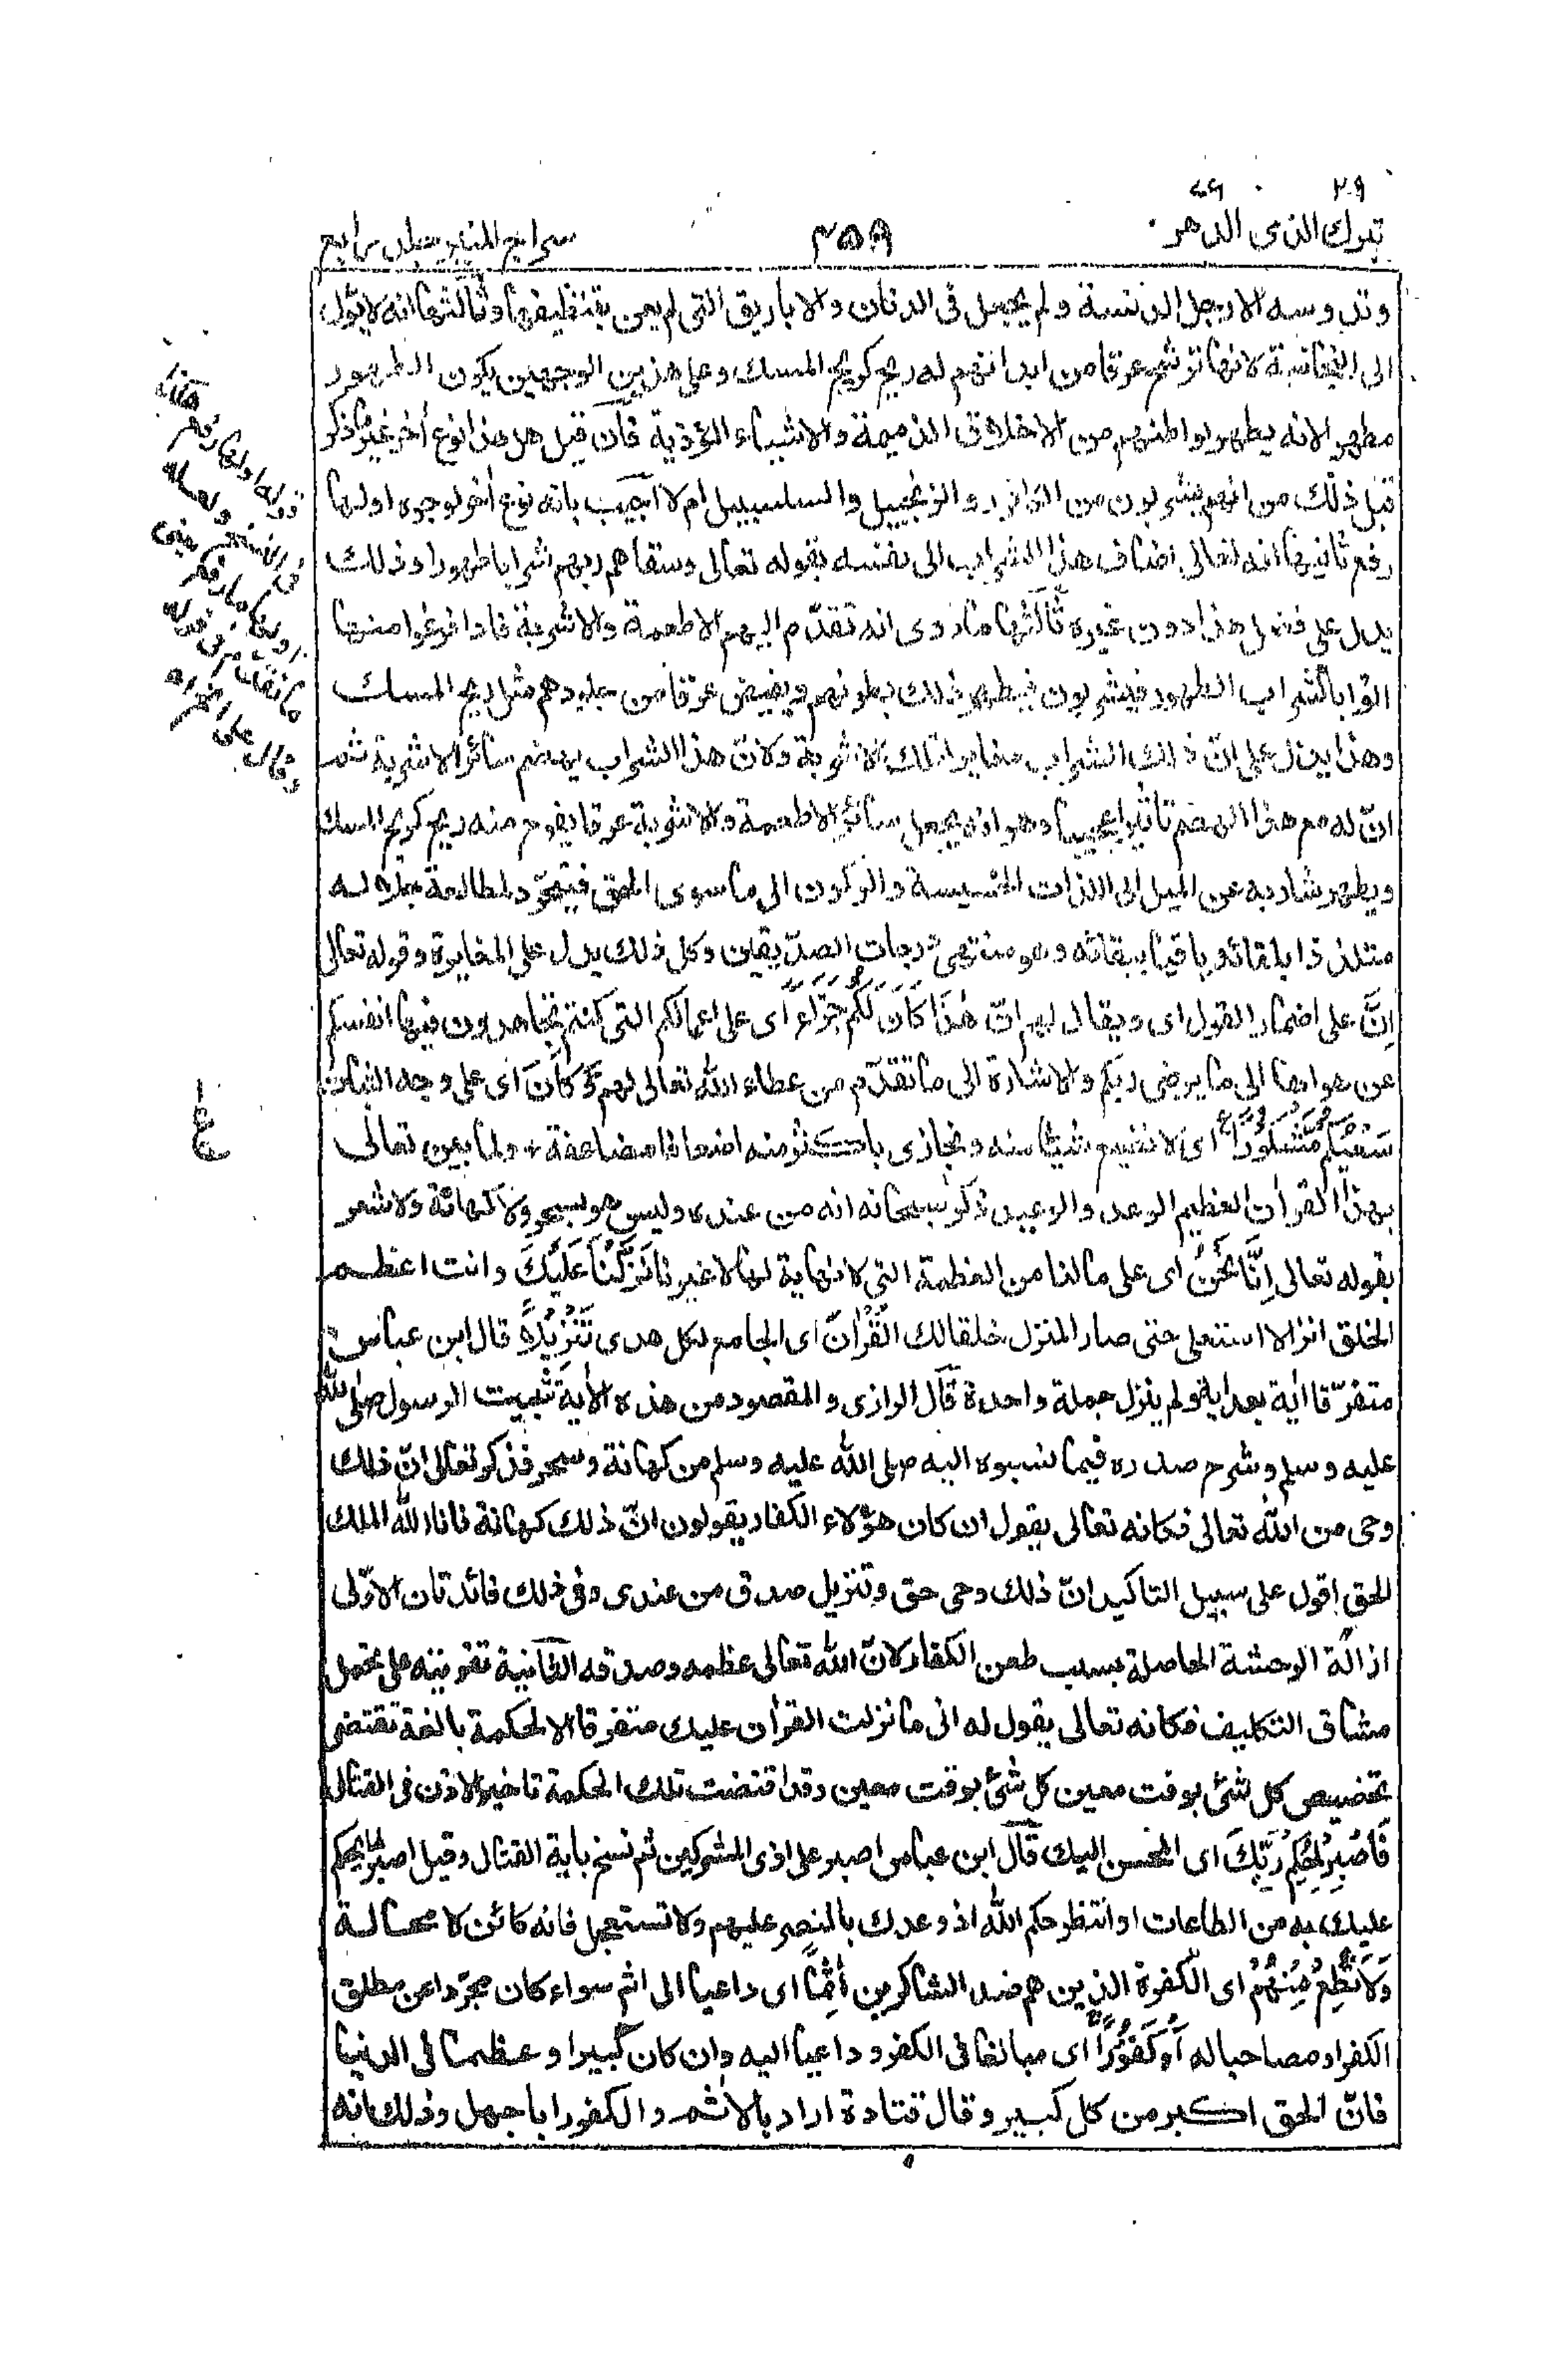 ٢٩ ٧٦
تبرك الذى الدهر
٤٥٨
سراج المنير جلد رابع
وتدوسه الارجل الدنسة ولم يجعل فى الدنان والاباريق التى لم يعن بتنظيفها وثالثها انه لا يؤل
الى النجاسة لانها ترشح عرقا من ابدانهم له ريح كريح المسك وعلى هذين الوجهين يكون الطهور
مطهرا لانه يطهر بواطنهم من الاخلاق الذميمة والاشياء المؤذية فان قيل هل هذا نوع اخر غير ما ذكر
قبل ذلك من انهم يشربون من الكافور والزنجبيل والسلسبيل ام لا اجيب بانه نوع اخر لوجوه اولها
رفع ثانيها انه تعالى اضاف هذا الشراب الى نفسه بقوله تعالى وسقاهم ربهم شرابا طهورا وذلك
يدل على فضل هذا دون غيره ثالثها ما روى انه تقدّم اليهم الاطعمة والاشربة فاذا فرغوا منها
اتوا بالشراب الطهور فيشربون فيطهر ذلك بطونهم ويفيض عرقا من جلودهم مثل ريح المسك
وهذا يدل على انّ ذلك الشراب مغاير لتلك الاشربة ولانّ هذا الشراب يهضم سائر الاشربة ثم
انّ له مع هذا الهضم تاثيرا عجيبا وهو انه يجعل سائر الاطعمة والاشربة عرقا يفوح منه ريح كريح المسك
ويطهر شاربه عن الميل الى اللذات الخسيسة والركون الى ما سوى الحق فيتجرّد لمطالعة جماله
متلذذا بلقائه باقيا ببقائه وهو منتهى درجات الصدّيقين وكل ذلك يدل على المغايرة وقوله تعالى
اِنَّ على اضمار القول اى ويقال لهم انّ هٰذَا كَانَ لَكُمْ جَزَاءً اى على اعمالكم التى كنتم تجاهدون فيها انفسكم
عن هواها الى ما يرضى ربكم والاشارة الى ما تقدّم من عطاء الله تعالى لهم وَكَانَ اى على وجه الثبات
سَعْيُكُمْ مَّشْكُوْرًا اى لا نضيع شيئا منه ونجازى باكثر منه اضعافا مضاعفة ولما بين تعالى
بهذا القراٰن العظيم الوعد والوعيد ذكر سبحانه انه من عنده وليس هو بسحر ولا كهانة ولا شعر
بقوله تعالى اِنَّا نَحْنُ اى على ما لنا من العظمة التى لا نهاية لها لا غيرنا نَزَّلْنَا عَلَيْكَ وانت اعظم
الخلق انزالا استعلى حتى صار المنزل خلقا لك الْقُرْاٰنَ اى الجامع لكل هدى تَنْزِيْلًا قال ابن عباس
متفرّقا اٰية بعد اٰية ولم ينزل جملة واحدة قال الرازى والمقصود من هذه الاٰية تثبيت الرسول صلى الله
عليه وسلم وشرح صدره فيما نسبوه اليه صلى الله عليه وسلم من كهانة وسحر فذكر تعالى انّ ذلك
وحى من الله تعالى فكانه تعالى يقول ان كان هؤلاء الكفار يقولون انّ ذلك كهانة فانا الله الملك
الحق اقول على سبيل التاكيد انّ ذلك وحى حق وتنزيل صدق من عندى وفى ذلك فائدتان الاولى
ازالة الوحشة الحاصلة بسبب طعن الكفار لانّ الله تعالى عظمه وصدقه الثانية تقويته على تحمل
مشاق التكليف فكانه تعالى يقول له انى ما نزلت القراٰن عليك متفرقا الا لحكمة بالغة تقتضى
تخصيص كل شئ بوقت معين وقد اقتضت تلك الحكمة تاخير الاذن فى القتال
فَاصْبِرْ لِحُكْمِ رَبِّكَ اى المحسن اليك قال ابن عباس اصبر على اذى المشركين ثم نسخ باٰية القتال وقيل اصبر لما يحكم
عليك به من الطاعات او انتظر حكم الله اذ وعدك بالنصر عليهم ولا تستعجل فانه كائن لا محالة
وَلَا تُطِعْ مِنْهُمْ اى الكفرة الذين هم ضد الشاكرين اٰثِمًا اى داعيا الى اثم سواء كان مجرّدا عن مطلق
الكفر او مصاحبا له اَوْ كَفُوْرًا اى مبالغا فى الكفر وداعيا اليه وان كان كبيرا وعظيما فى الدنيا
فانّ الحق اكبر من كل كبير وقال قتادة اراد بالاٰثم والكفور ابا جهل وذلك انه
قوله اولها رفع هكذا
فى النسخ ولعله
وقال على اخره
ع